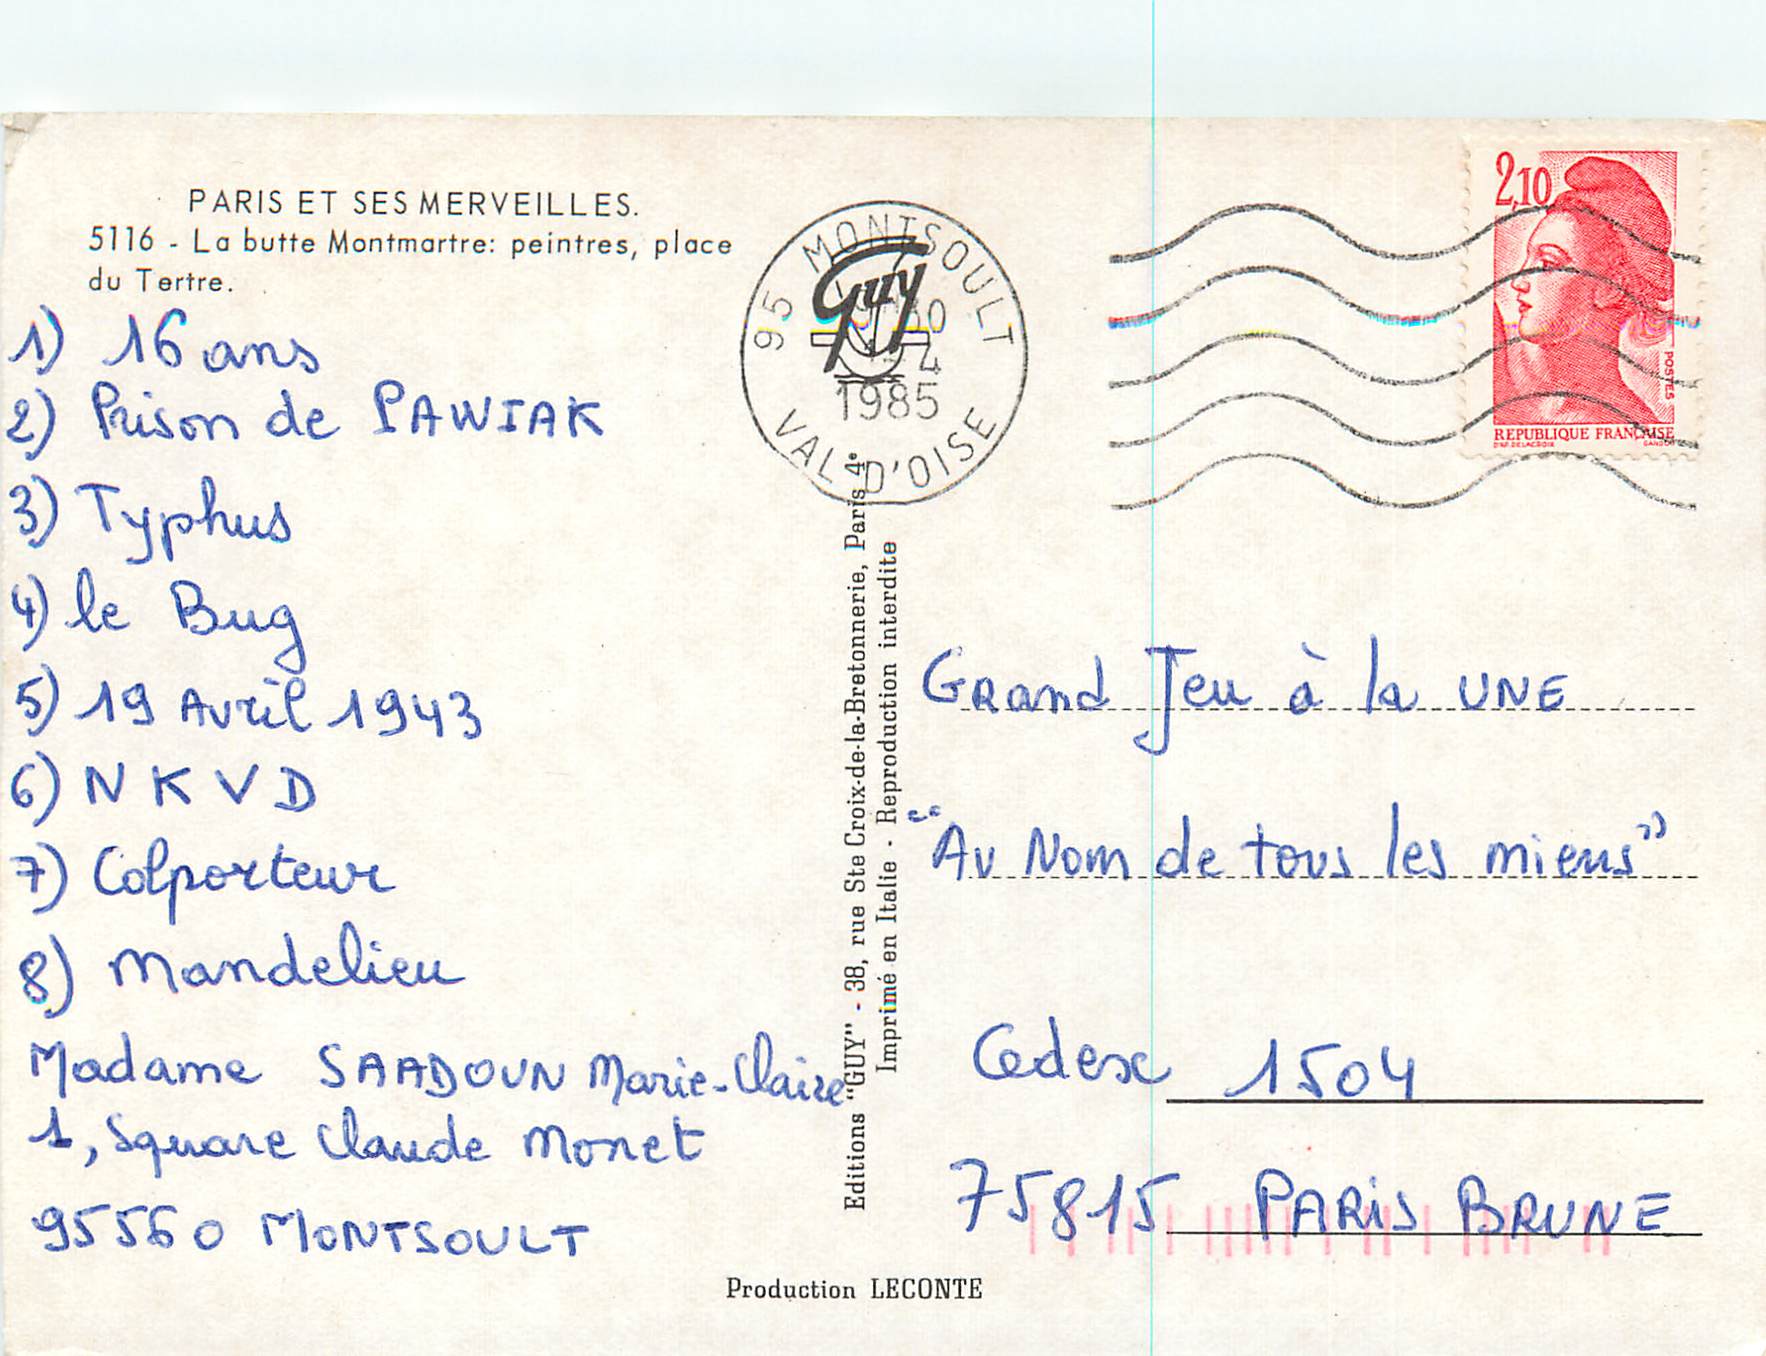 PARIS ET SES MERVEILLES.
5116 - La butte Montmartre: peintres, place
du Tertre.
1) 16 ans
2) Prison de PAWIAK
3) Typhus
4) le Bug
5) 19 Avril 1943
6) N K V D
7) Colporteur
8) Mandelieu
Madame SAADOUN Marie-Claire
1, Square Claude Monet
95560 MONTSOULT
95 MONTSOULT
Guy
1985
VAL D'OISE
Editions "GUY" - 38, rue Ste Croix-de-la-Bretonnerie, Paris 4e
Imprimé en Italie - Reproduction interdite
2,10
POSTES
REPUBLIQUE FRANÇAISE
Grand Jeu à la UNE
"Au Nom de tous les miens"
Cedex 1504
75815 PARIS BRUNE
Production LECONTE